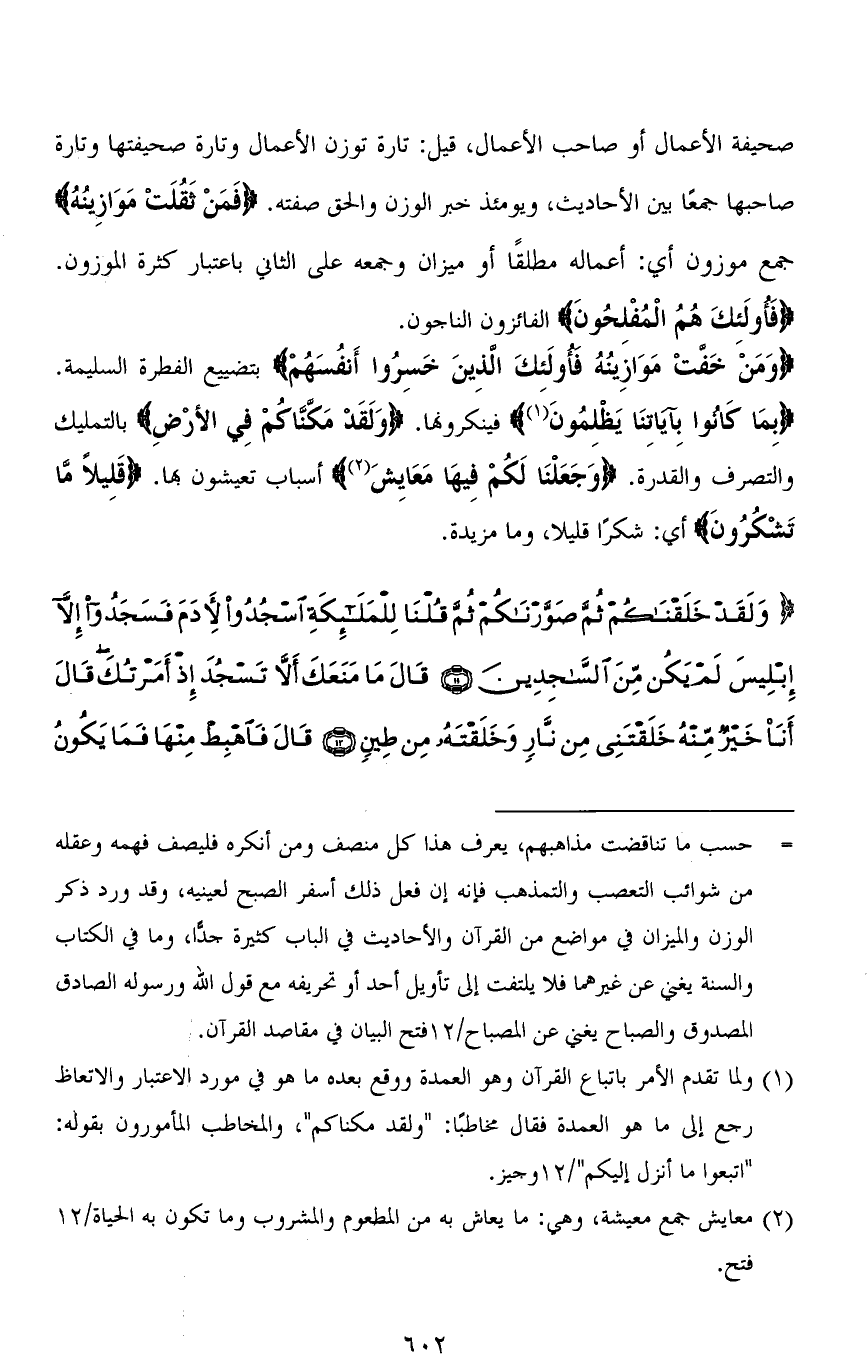 صحيفة الأعمال أو صاحب الأعمال، قيل: تارة توزن الأعمال وتارة صحيفتها وتارة
صاحبها جمعًا بين الأحاديث، ويومئذ خبر الوزن والحق صفته. ﴿فَمَنْ ثَقُلَتْ مَوَازِينُهُ﴾
جمع موزون أي: أعماله مطلقًا أو ميزان وجمعه على الثاني باعتبار كثرة الموزون.
﴿فَأُولَئِكَ هُمُ الْمُفْلِحُونَ﴾ الفائزون الناجون.
﴿وَمَنْ خَفَّتْ مَوَازِينُهُ فَأُولَئِكَ الَّذِينَ خَسِرُوا أَنفُسَهُمْ﴾ بتضييع الفطرة السليمة.
﴿بِمَا كَانُوا بِآيَاتِنَا يَظْلِمُونَ(١)﴾ فينكرونها. ﴿وَلَقَدْ مَكَّنَّاكُمْ فِي الأَرْضِ﴾ بالتمليك
والتصرف والقدرة. ﴿وَجَعَلْنَا لَكُمْ فِيهَا مَعَايِشَ(٢)﴾ أسباب تعيشون بها. ﴿قَلِيلاً مَّا
تَشْكُرُونَ﴾ أي: شكرًا قليلا، وما مزيدة.
﴿ وَلَقَدْ خَلَقْنَٰكُمْ ثُمَّ صَوَّرْنَٰكُمْ ثُمَّ قُلْنَا لِلْمَلَٰٓئِكَةِ ٱسْجُدُوا۟ لِأَدَمَ فَسَجَدُوٓا۟ إِلَّآ
إِبْلِيسَ لَمْ يَكُن مِّنَ ٱلسَّٰجِدِينَ ۝١١ قَالَ مَا مَنَعَكَ أَلَّا تَسْجُدَ إِذْ أَمَرْتُكَ ۖ قَالَ
أَنَا۠ خَيْرٌ مِّنْهُ خَلَقْتَنِى مِن نَّارٍ وَخَلَقْتَهُۥ مِن طِينٍ ۝١٢ قَالَ فَٱهْبِطْ مِنْهَا فَمَا يَكُونُ
= حسب ما تناقضت مذاهبهم، يعرف هذا كل منصف ومن أنكره فليصف فهمه وعقله
من شوائب التعصب والتمذهب فإنه إن فعل ذلك أسفر الصبح لعينيه، وقد ورد ذكر
الوزن والميزان في مواضع من القرآن والأحاديث في الباب كثيرة جدًّا، وما في الكتاب
والسنة يغني عن غيرهما فلا يلتفت إلى تأويل أحد أو تحريفه مع قول الله ورسوله الصادق
المصدوق والصباح يغني عن المصباح/١٢فتح البيان في مقاصد القرآن.
(١) ولما تقدم الأمر باتباع القرآن وهو العمدة ووقع بعده ما هو في مورد الاعتبار والاتعاظ
رجع إلى ما هو العمدة فقال مخاطبًا: "ولقد مكناكم"، والمخاطب المأمورون بقوله:
"اتبعوا ما أنزل إليكم"/١٢وجيز.
(٢) معايش جمع معيشة، وهي: ما يعاش به من المطعوم والمشروب وما تكون به الحياة/١٢
فتح.
٦٠٢